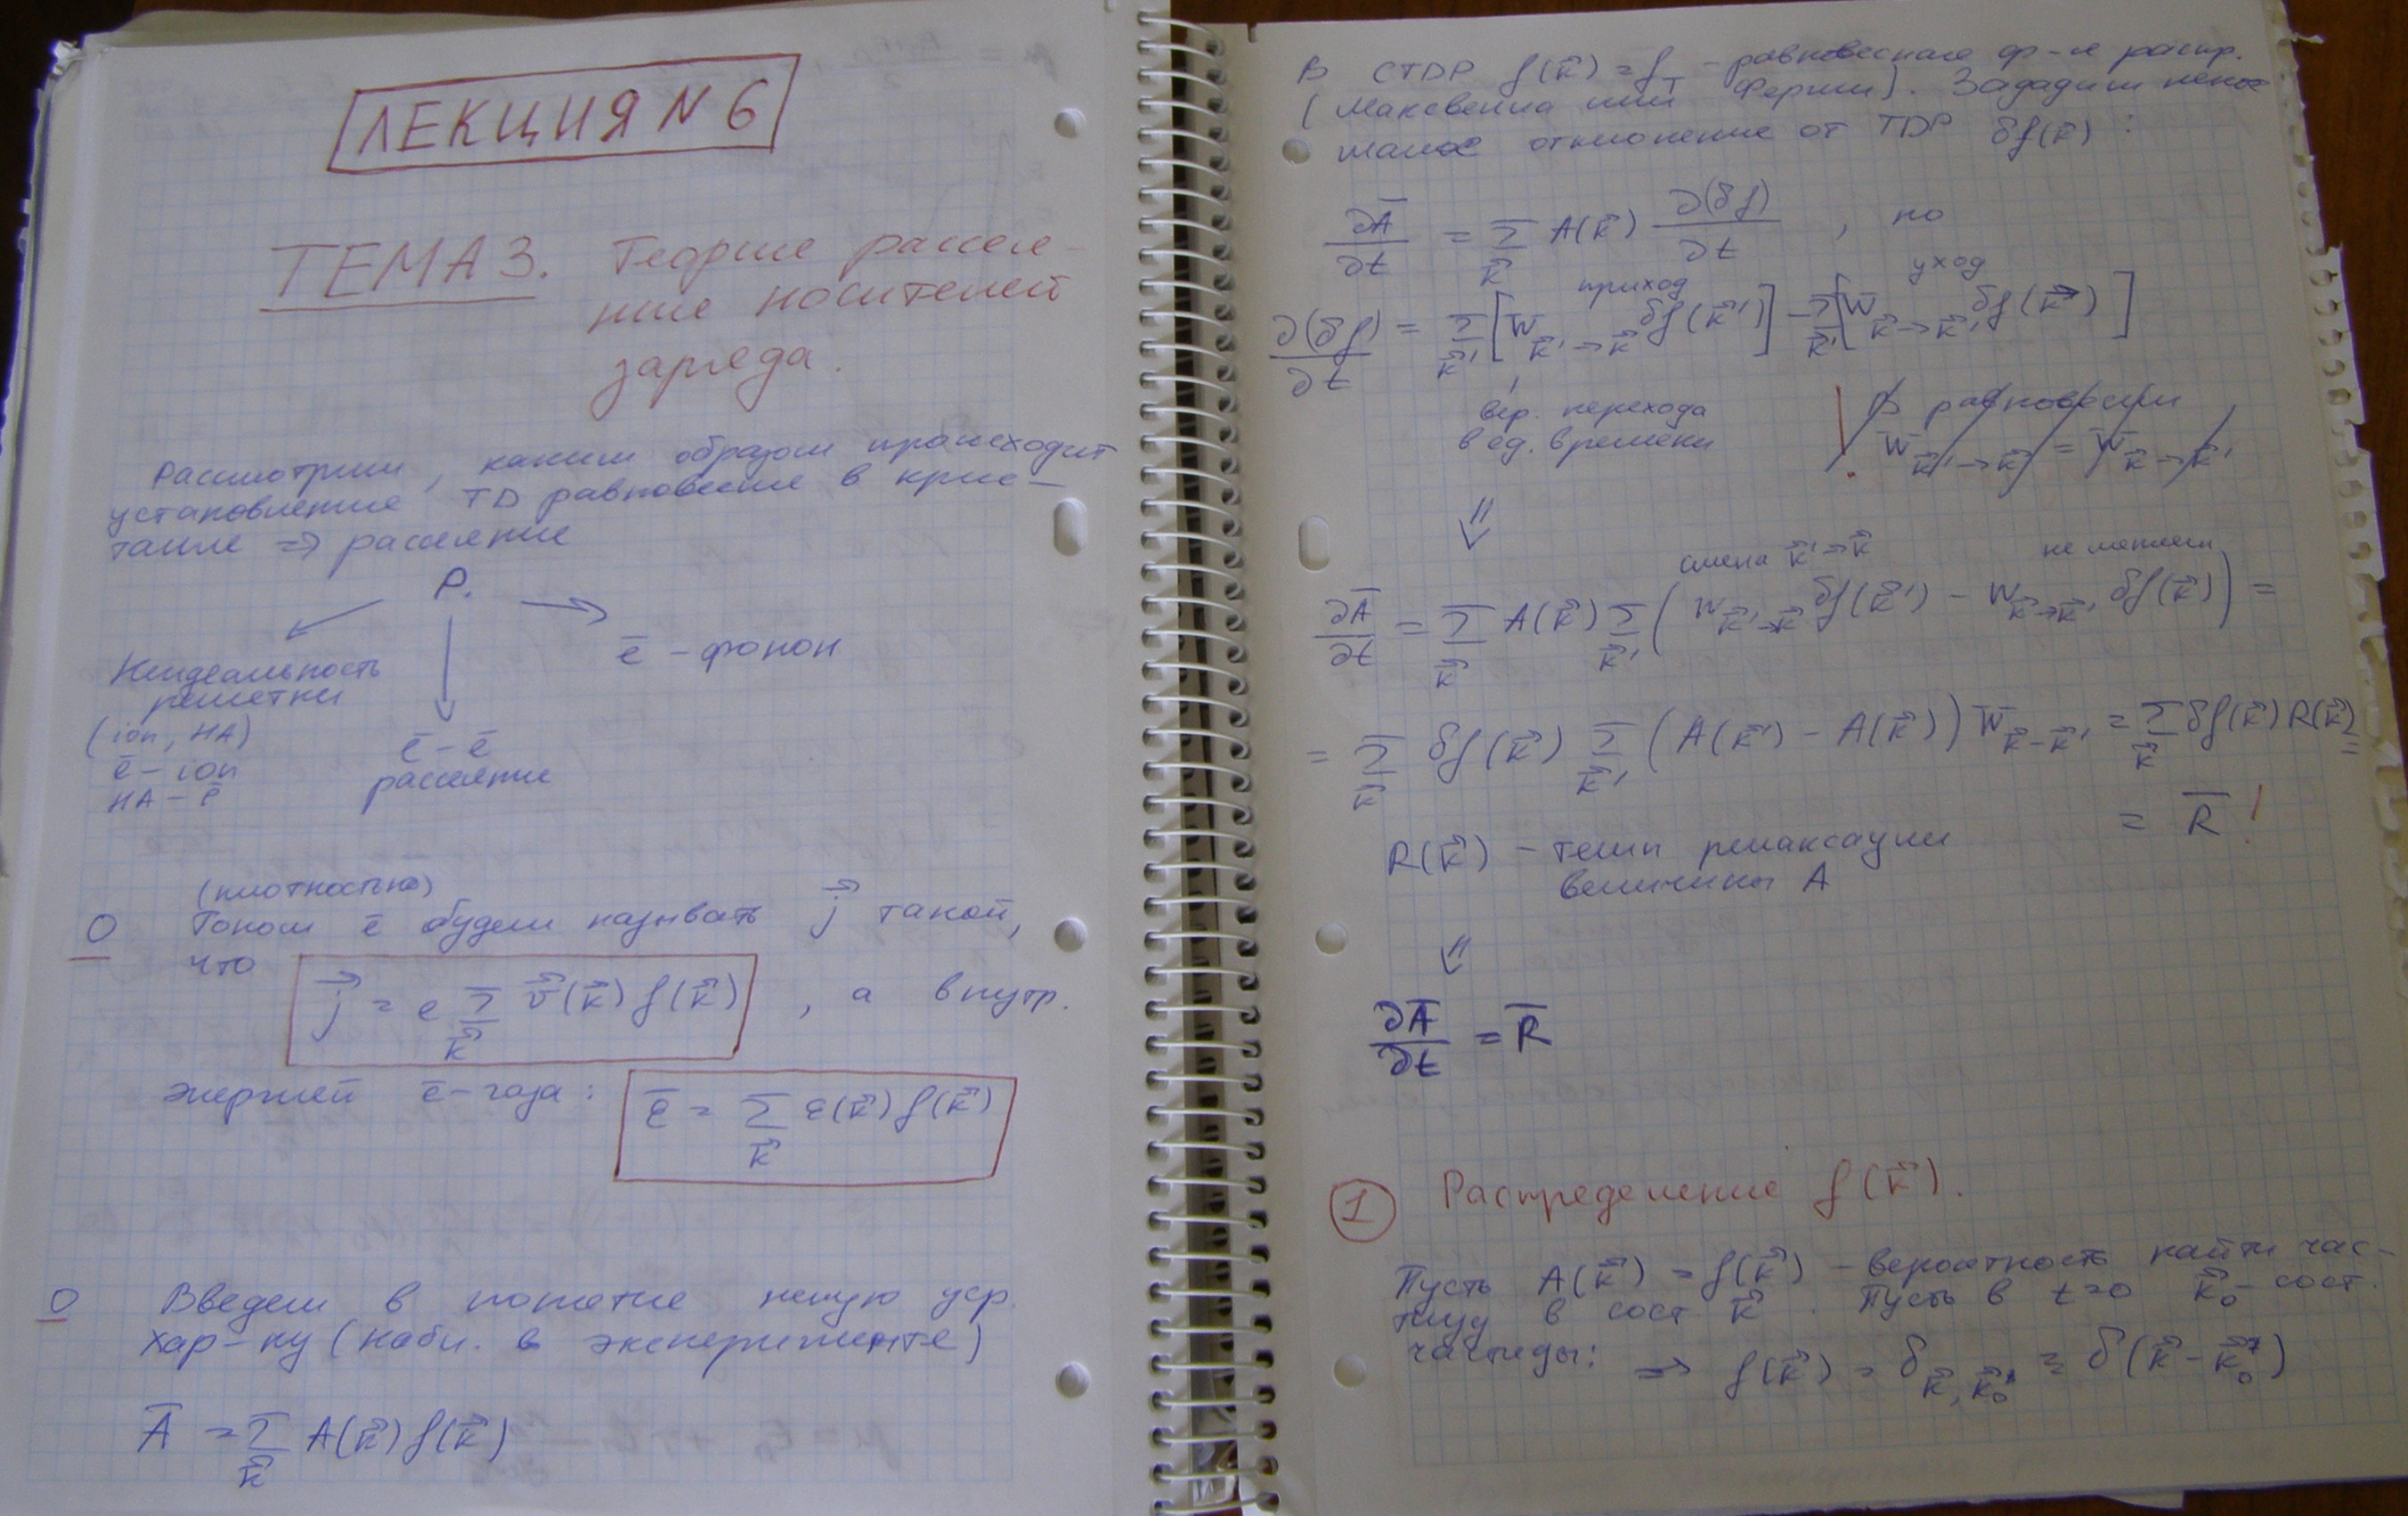 ЛЕКЦИЯ N 6
ТЕМА 3. Теория рассея-
ния носителей
заряда.
Рассмотрим, каким образом происходит
установление TD равновесия в крис-
талле => рассеяние
Р.
Неидеальность
решетки
(ion, НА)
ē - ion
НА - ē
ē - ē
рассеяние
ē - фонон
(плотностью)
О Током ē будем называть j⃗ такой,
что j⃗ = e Σ_k⃗ v⃗(k⃗) f(k⃗) , а внутр.
энергией ē-газа: ε̄ = Σ_k⃗ ε(k⃗) f(k⃗)
О Введем в понятие некую уср.
хар-ку (набл. в эксперименте)
Ā = Σ_k⃗ A(k⃗) f(k⃗)
В СТДР f(k⃗) = f_T - равновесная ф-я распр.
(Максвелла или Ферми). Зададим некое
малое отклонение от TDP δf(k⃗) :
∂Ā/∂t = Σ_k⃗ A(k⃗) ∂(δf)/∂t , но
приход уход
∂(δf)/∂t = Σ_k⃗' [W_k⃗'→k⃗ δf(k⃗')] - Σ_k⃗' [W_k⃗→k⃗' δf(k⃗)]
вер. перехода
в ед. времени
! В равновесии
W_k⃗'→k⃗ = W_k⃗→k⃗'
⇓
смена k⃗'→k⃗ не меняем
∂Ā/∂t = Σ_k⃗ A(k⃗) Σ_k⃗' (W_k⃗'→k⃗ δf(k⃗') - W_k⃗→k⃗' δf(k⃗)) =
= Σ_k⃗ δf(k⃗) Σ_k⃗' (A(k⃗') - A(k⃗)) W_k⃗-k⃗' = Σ_k⃗ δf(k⃗) R(k⃗) =
= R̄ !
R(k⃗) - темп релаксации
величины A
⇓
∂Ā/∂t = R̄
1 Распределение f(k⃗).
Пусть A(k⃗) = f(k⃗) - вероятность найти час-
тицу в сост k⃗. Пусть в t=0 k⃗₀ - сост.
частицы: => f(k⃗) = δ_k⃗,k⃗₀ = δ(k⃗ - k⃗₀)